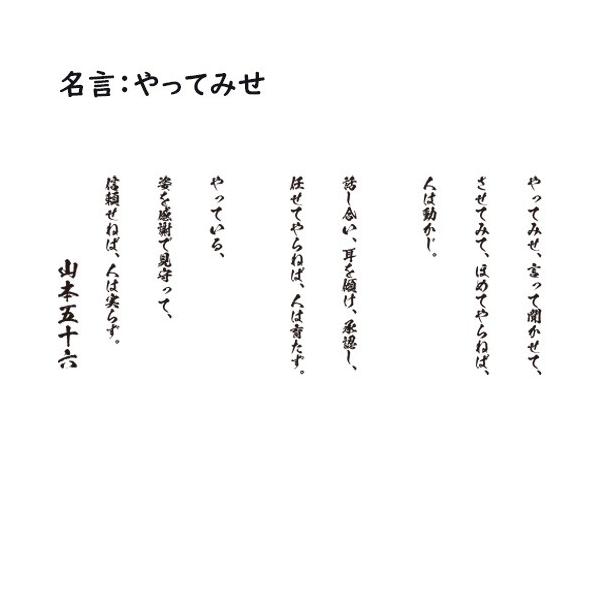 名言：やってみせ
やってみせ、言って聞かせて、
させてみて、ほめてやらねば、
人は動かじ。
話し合い、耳を傾け、承認し、
任せてやらねば、人は育たず。
やっている、
姿を感謝で見守って、
信頼せねば、人は実らず。
山本五十六